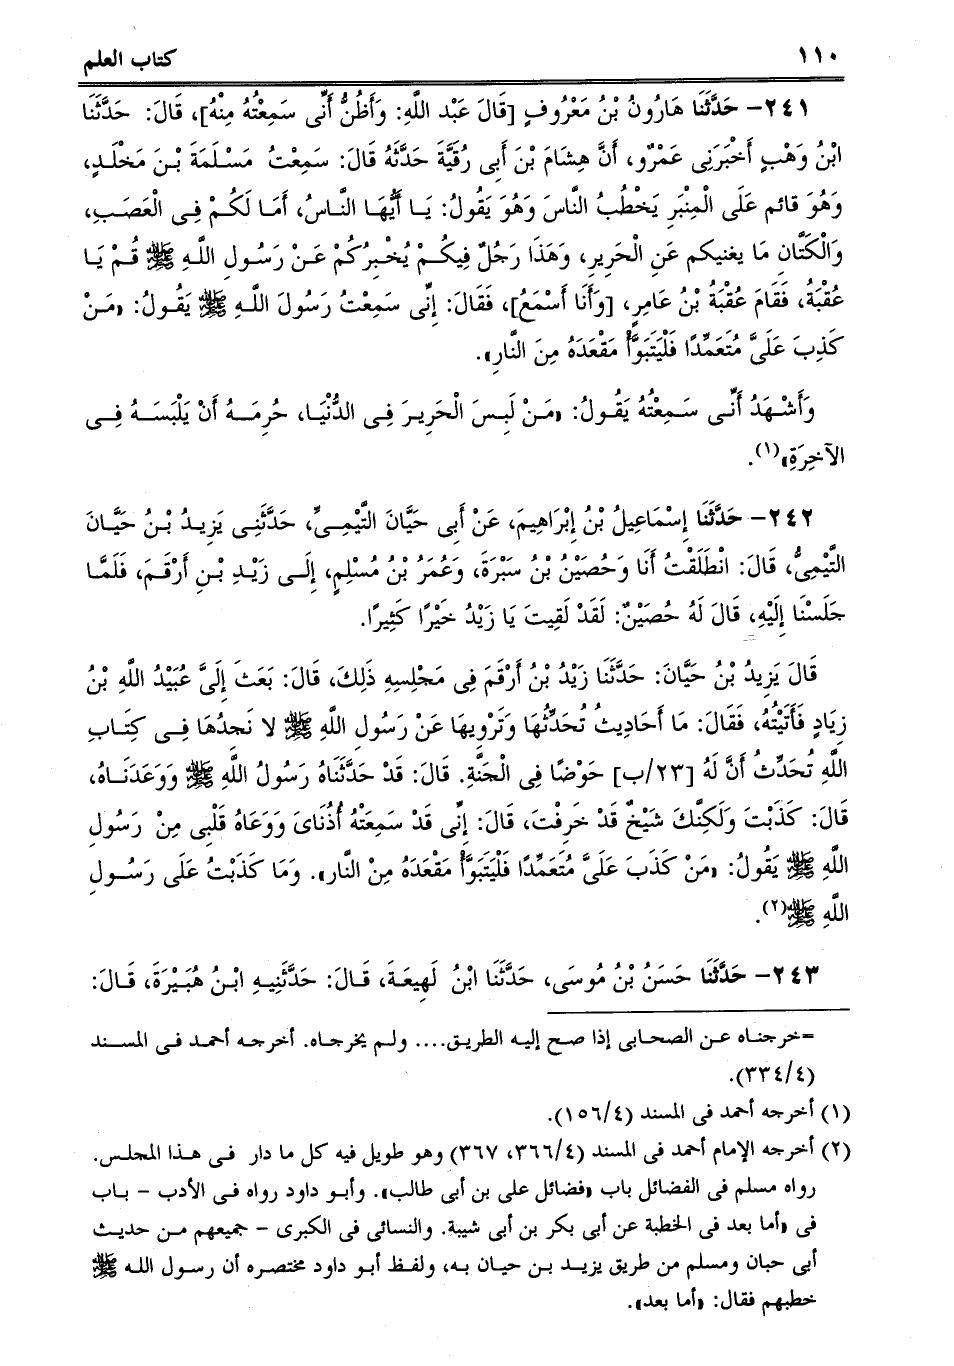 ١١٠ كتاب العلم
٢٤١- حَدَّثَنَا هَارُونُ بْنُ مَعْرُوفٍ [قَالَ عَبْد اللَّهِ: وَأَظُنُّ أَنِّى سَمِعْتُهُ مِنْهُ]، قَالَ: حَدَّثَنَا
ابْنُ وَهْبٍ أَخْبَرَنِى عَمْرٌو، أَنَّ هِشَامَ بْنَ أَبِى رُقَيَّةَ حَدَّثَهُ قَالَ: سَمِعْتُ مَسْلَمَةَ بْنَ مَخْلَدٍ،
وَهُوَ قائم عَلَى الْمِنْبَرِ يَخْطُبُ النَّاسَ وَهُوَ يَقُولُ: يَا أَيُّهَا النَّاسُ، أَمَا لَكُمْ فِى الْعَصَبِ،
وَالْكَتَّانِ مَا يغنيكم عَنِ الْحَرِيرِ، وَهَذَا رَجُلٌ فِيكُمْ يُخْبِرُكُمْ عَنْ رَسُولِ اللَّهِ ﷺ قُمْ يَا
عُقْبَةُ، فَقَامَ عُقْبَةُ بْنُ عَامِرٍ، [وَأَنَا أَسْمَعُ]، فَقَالَ: إِنِّى سَمِعْتُ رَسُولَ اللَّهِ ﷺ يَقُولُ: «مَنْ
كَذِبَ عَلَىَّ مُتَعَمِّدًا فَلْيَتَبَوَّأْ مَقْعَدَهُ مِنَ النَّارِ».
وَأَشْهَدُ أَنِّى سَمِعْتُهُ يَقُولُ: «مَنْ لَبِسَ الْحَرِيرَ فِى الدُّنْيَا، حُرِمَهُ أَنْ يَلْبَسَهُ فِى
الآخِرَةِ»(١).
٢٤٢- حَدَّثَنَا إِسْمَاعِيلُ بْنُ إِبْرَاهِيمَ، عَنْ أَبِى حَيَّانَ التَّيْمِىِّ، حَدَّثَنِى يَزِيدُ بْنُ حَيَّانَ
التَّيْمِىُّ، قَالَ: انْطَلَقْتُ أَنَا وَحُصَيْنُ بْنُ سَبْرَةَ، وَعُمَرُ بْنُ مُسْلِمٍ، إِلَى زَيْدِ بْنِ أَرْقَمَ، فَلَمَّا
جَلَسْنَا إِلَيْهِ، قَالَ لَهُ حُصَيْنٌ: لَقَدْ لَقِيتَ يَا زَيْدُ خَيْرًا كَثِيرًا.
قَالَ يَزِيدُ بْنُ حَيَّانَ: حَدَّثَنَا زَيْدُ بْنُ أَرْقَمَ فِى مَجْلِسِهِ ذَلِكَ، قَالَ: بَعَثَ إِلَىَّ عُبَيْدُ اللَّهِ بْنُ
زِيَادٍ فَأَتَيْتُهُ، فَقَالَ: مَا أَحَادِيثُ تُحَدِّثُهَا وَتَرْوِيهَا عَنْ رَسُولِ اللَّهِ ﷺ لا نَجِدُهَا فِى كِتَابِ
اللَّهِ تُحَدِّثُ أَنَّ لَهُ [٢٣/ب] حَوْضًا فِى الْجَنَّةِ. قَالَ: قَدْ حَدَّثَنَاهُ رَسُولُ اللَّهِ ﷺ وَوَعَدَنَاهُ،
قَالَ: كَذَبْتَ وَلَكِنَّكَ شَيْخٌ قَدْ خَرِفْتَ، قَالَ: إِنِّى قَدْ سَمِعَتْهُ أُذُنَاىَ وَوَعَاهُ قَلْبِى مِنْ رَسُولِ
اللَّهِ ﷺ يَقُولُ: «مَنْ كَذَبَ عَلَىَّ مُتَعَمِّدًا فَلْيَتَبَوَّأْ مَقْعَدَهُ مِنْ النار». وَمَا كَذَبْتُ عَلَى رَسُولِ
اللَّهِ ﷺ(٢).
٢٤٣- حَدَّثَنَا حَسَنُ بْنُ مُوسَى، حَدَّثَنَا ابْنُ لَهِيعَةَ، قَالَ: حَدَّثَنِيهِ ابْنُ هُبَيْرَةَ، قَالَ:
=خرجناه عن الصحابى إذا صح إليه الطريق.... ولم يخرجاه. أخرجه أحمد فى المسند
(٣٣٤/٤).
(١) أخرجه أحمد فى المسند (١٥٦/٤).
(٢) أخرجه الإمام أحمد فى المسند (٣٦٦/٤، ٣٦٧) وهو طويل فيه كل ما دار فى هذا المجلس.
رواه مسلم فى الفضائل باب «فضائل على بن أبى طالب». وأبو داود رواه فى الأدب - باب
فى «أما بعد فى الخطبة عن أبى بكر بن أبى شيبة. والنسائى فى الكبرى - جميعهم من حديث
أبى حبان ومسلم من طريق يزيد بن حيان به، ولفظ أبو داود مختصره أن رسول الله ﷺ
خطبهم فقال: «أما بعد».